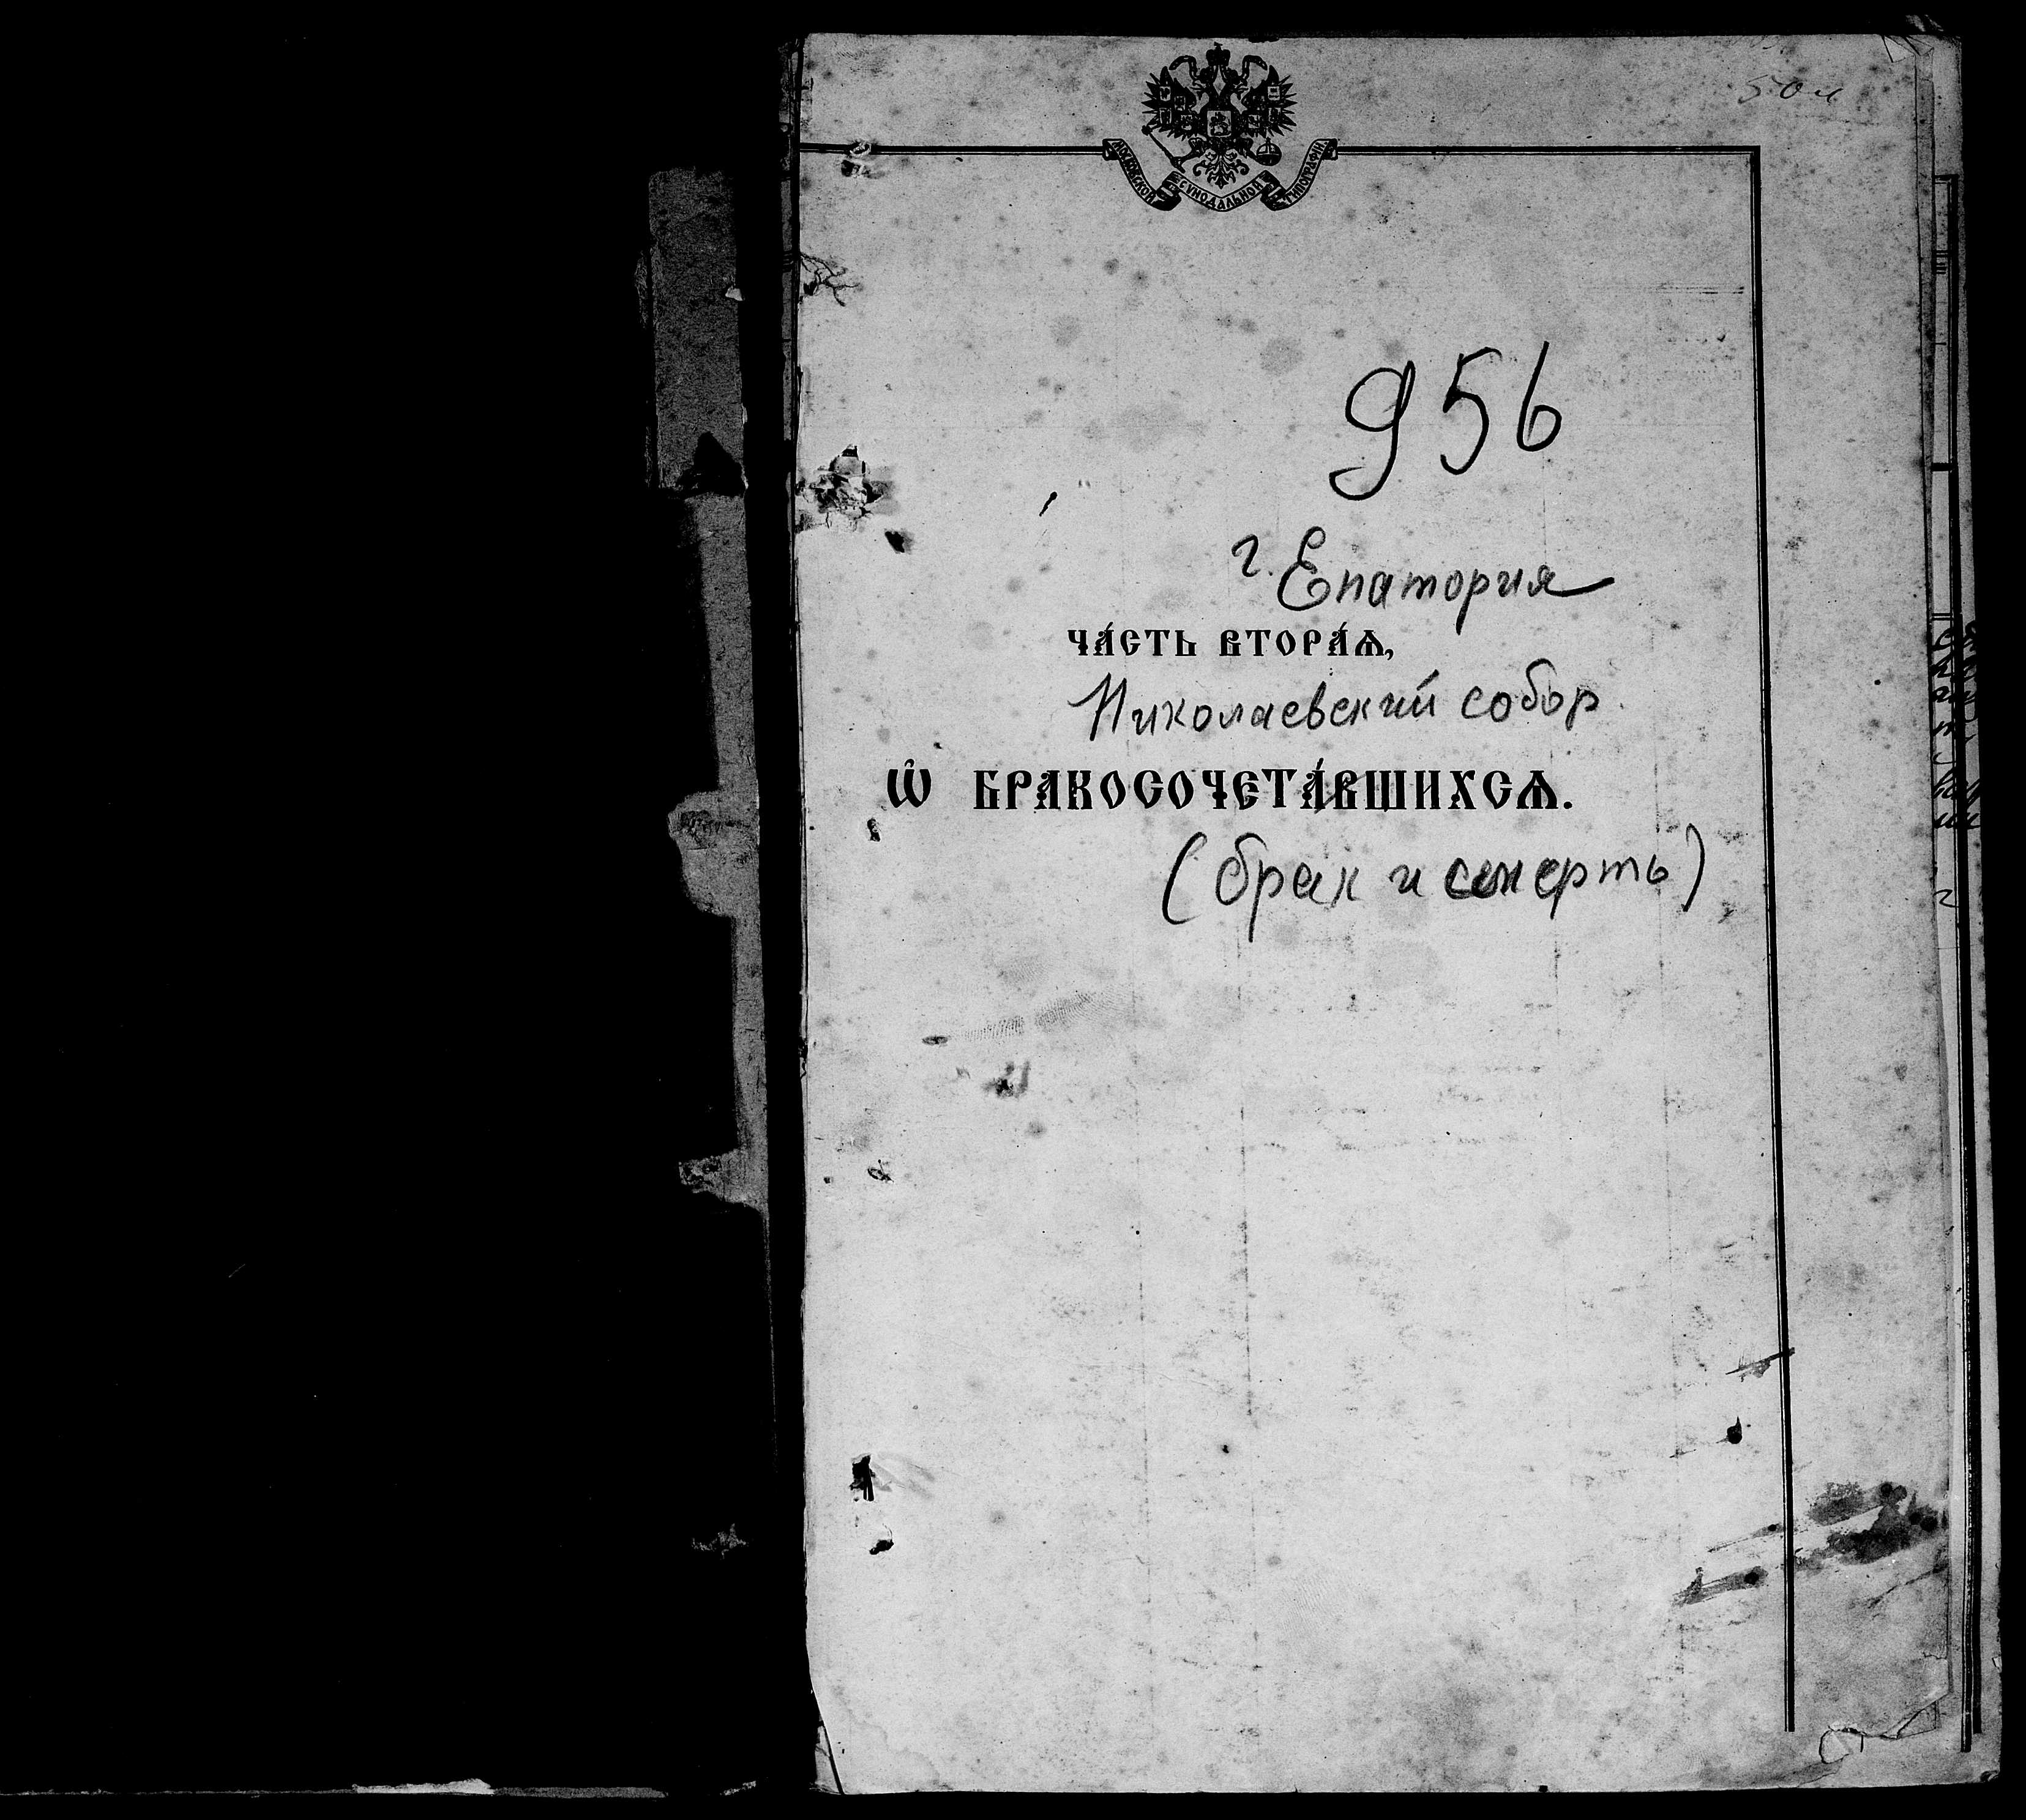 50 л
МОСКОВСКОЙ СУНОДАЛЬНОЙ ТИПОГРАФІИ
956
г. Епатория
ЧА́СТЬ ВТОРА́Ѧ,
Николаевский собор.
Ѽ БРАКОСОЧЕТА́ВШИХСѦ.
(брак и смерть)